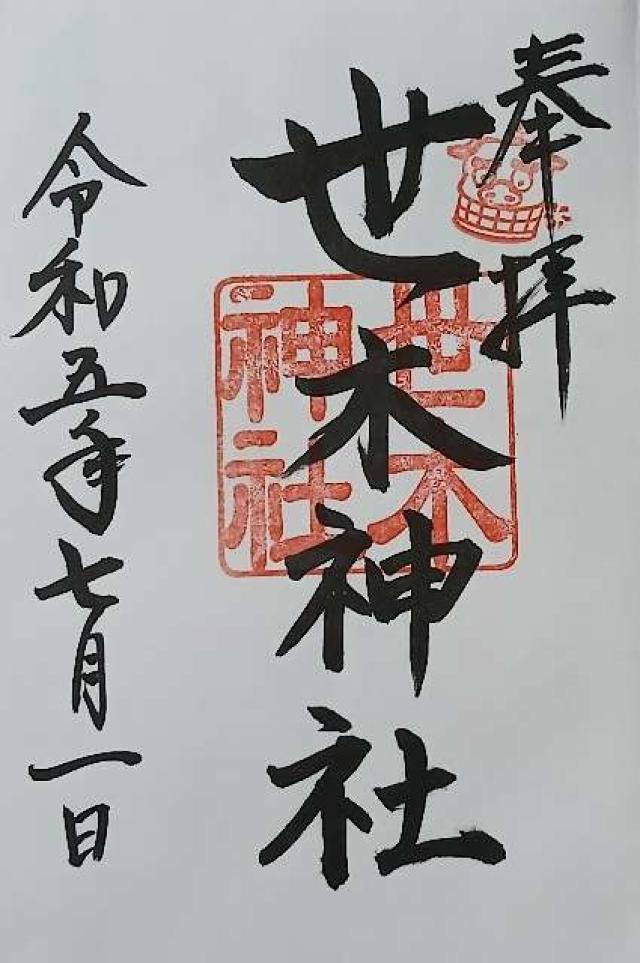 奉拝
世木神社
世木
神社
令和五年七月一日